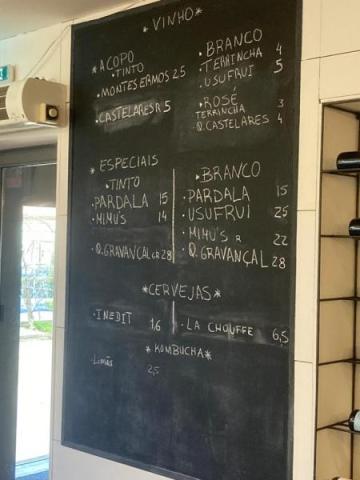 • VINHO •
* A COPO
• TINTO
• MONTES ERMOS 2,5
• CASTELARES R 5
• BRANCO
• TERRINCHA 4
• USUFRUI 5
• ROSÉ
TERRINCHA 3
Q. CASTELARES 4
* ESPECIAIS
• TINTO
PARDALA 15
• MIMU'S 14
• Q. GRAVANÇAL GR 28
• BRANCO
• PARDALA 15
• USUFRUI 25
• MIMU'S R 22
• Q. GRAVANÇAL 28
*CERVEJAS*
• INEDIT 16
• LA CHOUFFE 6,5
*KOMBUCHA*
• Limão 2,5